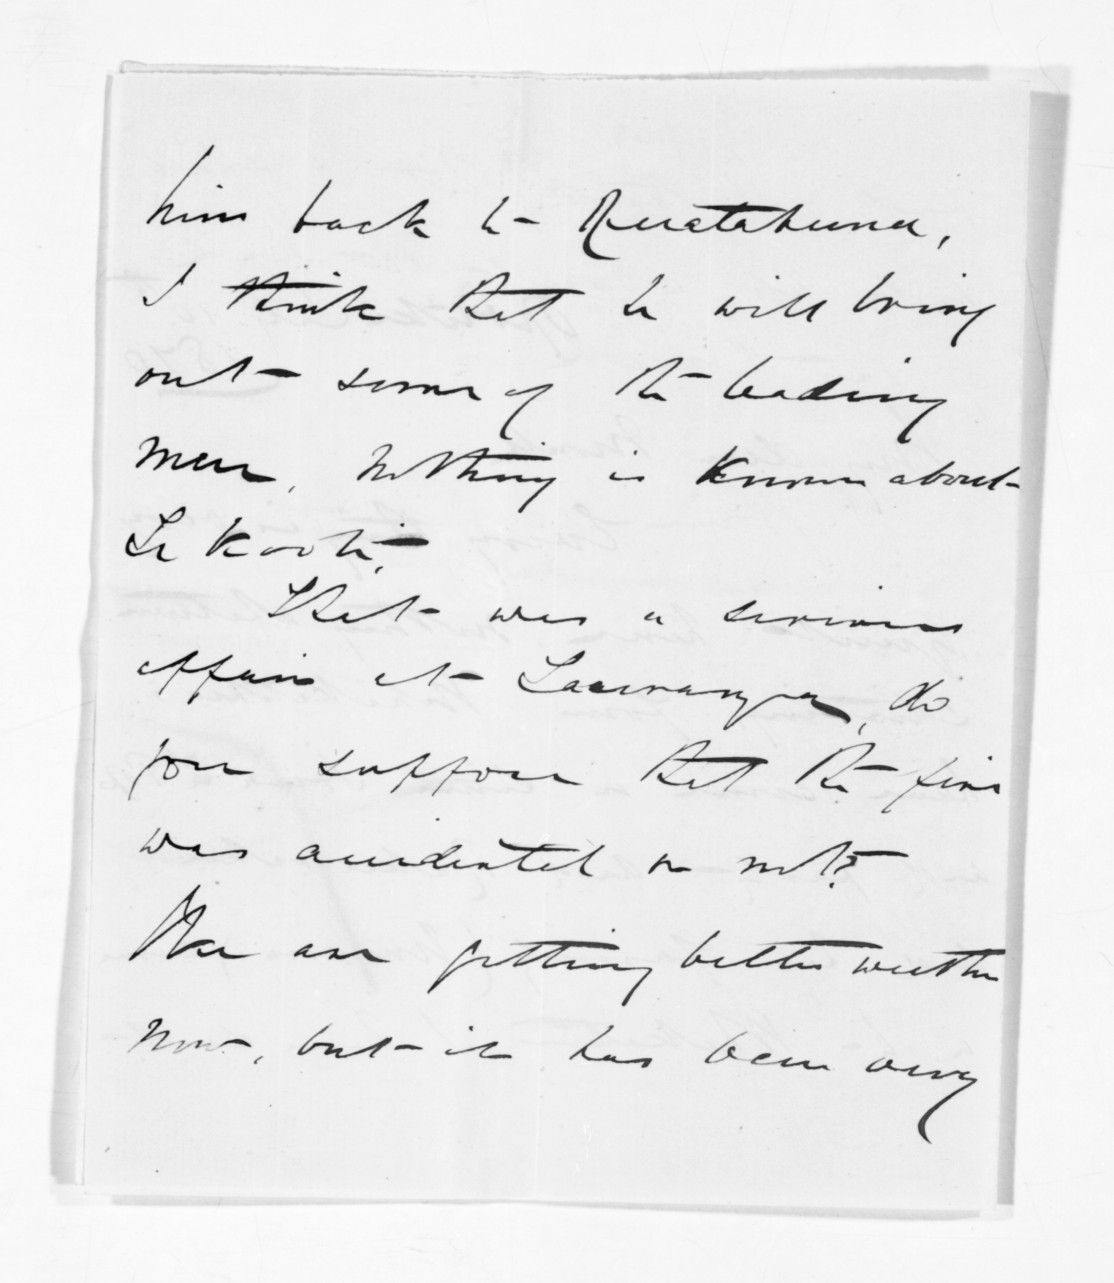 him back to Ruatahuna,
I think that he will bring
out some of the leading
men, nothing is known about
Te Kooti.
That was a serious
affair at Tauranga, do
you suppose that the fire
was accidental or not?
We are getting better weather
now, but it has been very